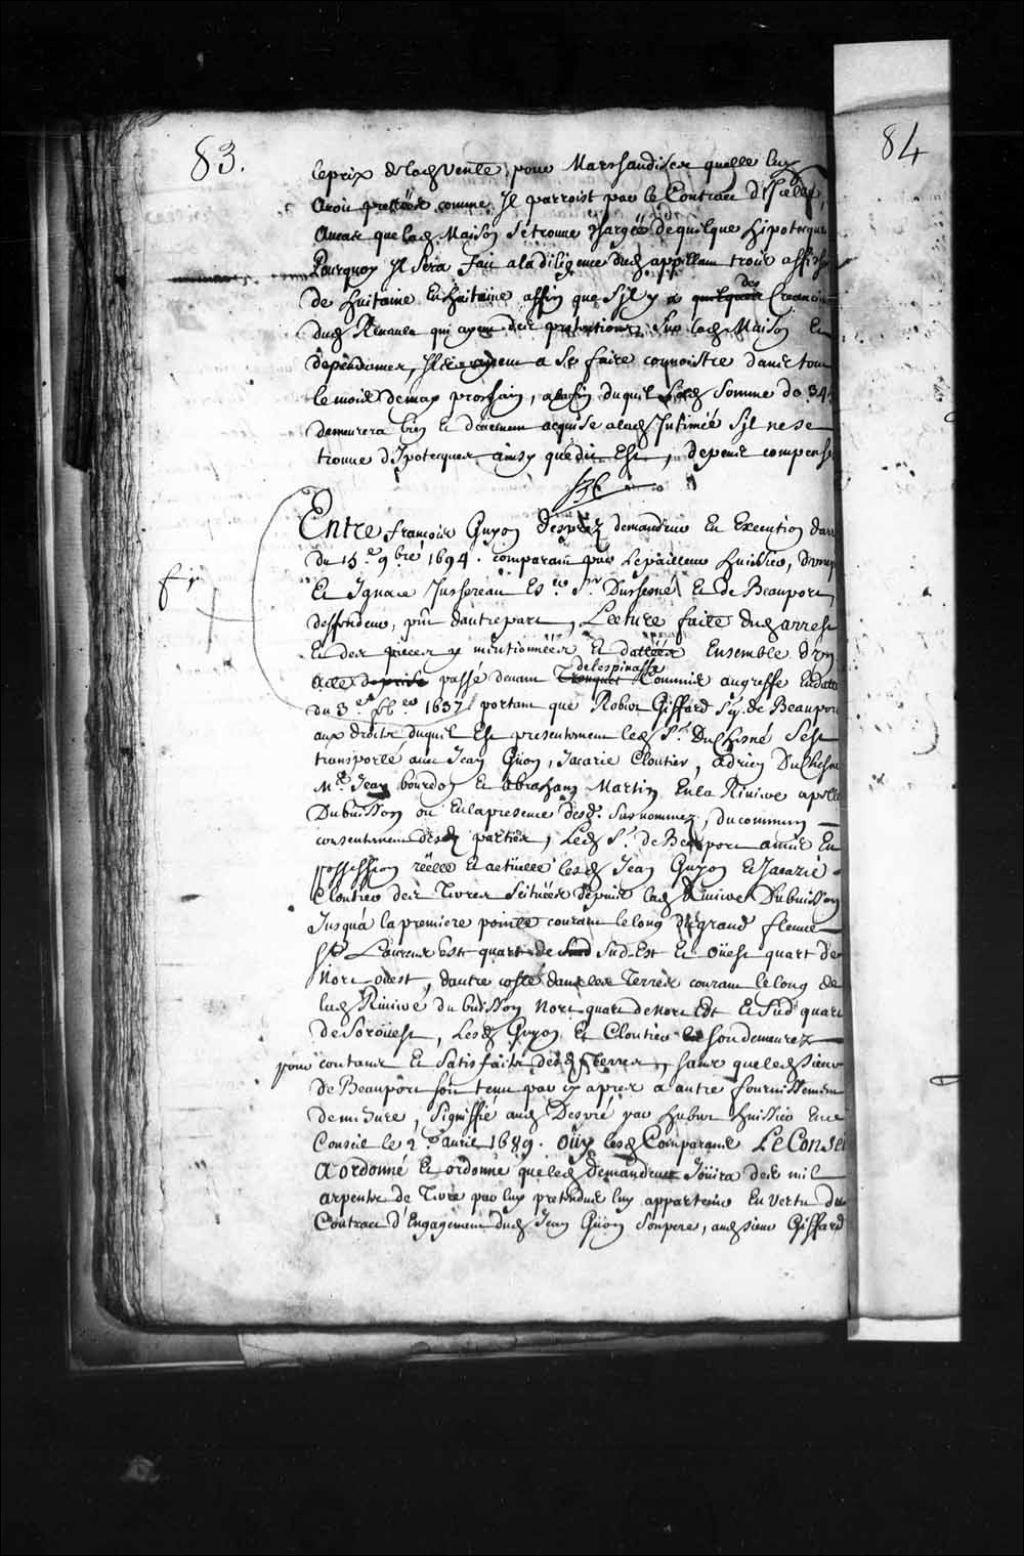 83.
84
le prix de lad vente, pour Marchandises quelle luy
avoir comme Il parroist par le Contract d'Icelle,
Aucas que lad Maison se trouve chargée de quelque hipotecque
Pourquoy Il sera fait a la diligence dud appellant trois affiches
de huitaine en huitaine affin que s'il y a quelques des Creanciers
dud Renault qui ayent des pretentions sur lad Maison Et
dependances, Ils ayent a se faire connoistre dans tout
le mois de may prochain, a la fin duquel lad somme de 34
demeurera bien Et deuement acquise alad Intimée S'il ne se
trouve d'Ipotecques ainsy que dit Est, depens compensés
Entre francois Guyon desprez demandeur En Execution d'arrest
du 15.e 9bre 1694. comparant par Lepailleur huissier, d'vne part
Et Ignace Juchereau Es.er S.r Duchesné Et de Beauport,
deffendeur, pnt d'autre part, Lecture faite dud arrest
Et des pieces y mentionnées Et dattées Ensemble d'vn
acte de prise passé devant Tronquet delespinasse Commis au greffe En datte
du 3.e fb.er 1637 portant que Robert Giffard Sg. de Beauport
aux droits duquel Est presentement led S.r DuChesné s'est
transporté avec Jean Guon, Zacarie Cloutier, adrien DuChesne
M.e Jean bourdon Et abraham Martin En la Riuiere apellé
Dubuisson ou En la presence desd. susnommez, du commun
consentement desd parties, Led S.r de Beauport a mis En
possession réelle Et actuelle lesd Jean Guyon Et Zacarie
Cloutier des Terres scituées depuis lad Riuiere Dubuisson
Jusqu'à la premiere pointe courant le long du grand fleuve
S.t Laurens Est quart de Sud Sud-Est Et Oüest quart de
Nort ouest, d'autre costé dans les Terres courant le long de
lad Riuiere du buisson Nort quart de Nort Est Et Sud quart
de Soroüest, Lesd Guyon Et Cloutier se son demeurez
pour contans Et Satisfaits desd Terres, sans que led Sieur
de Beauport soit tenu par cy apres a autre fournissement
de mesure, Signiffié aud Després par hubert huissier En ce
Conseil le 2.e avril 1689. Oüy lesd Comparans Le Conseil
A ordonné Et ordonne que led demandeur Joüira des mil
arpents de Terre par luy pretendus luy appartenir En vertu du
Contract d'Engagement dud Jean Guon son pere, aud sieur Giffard